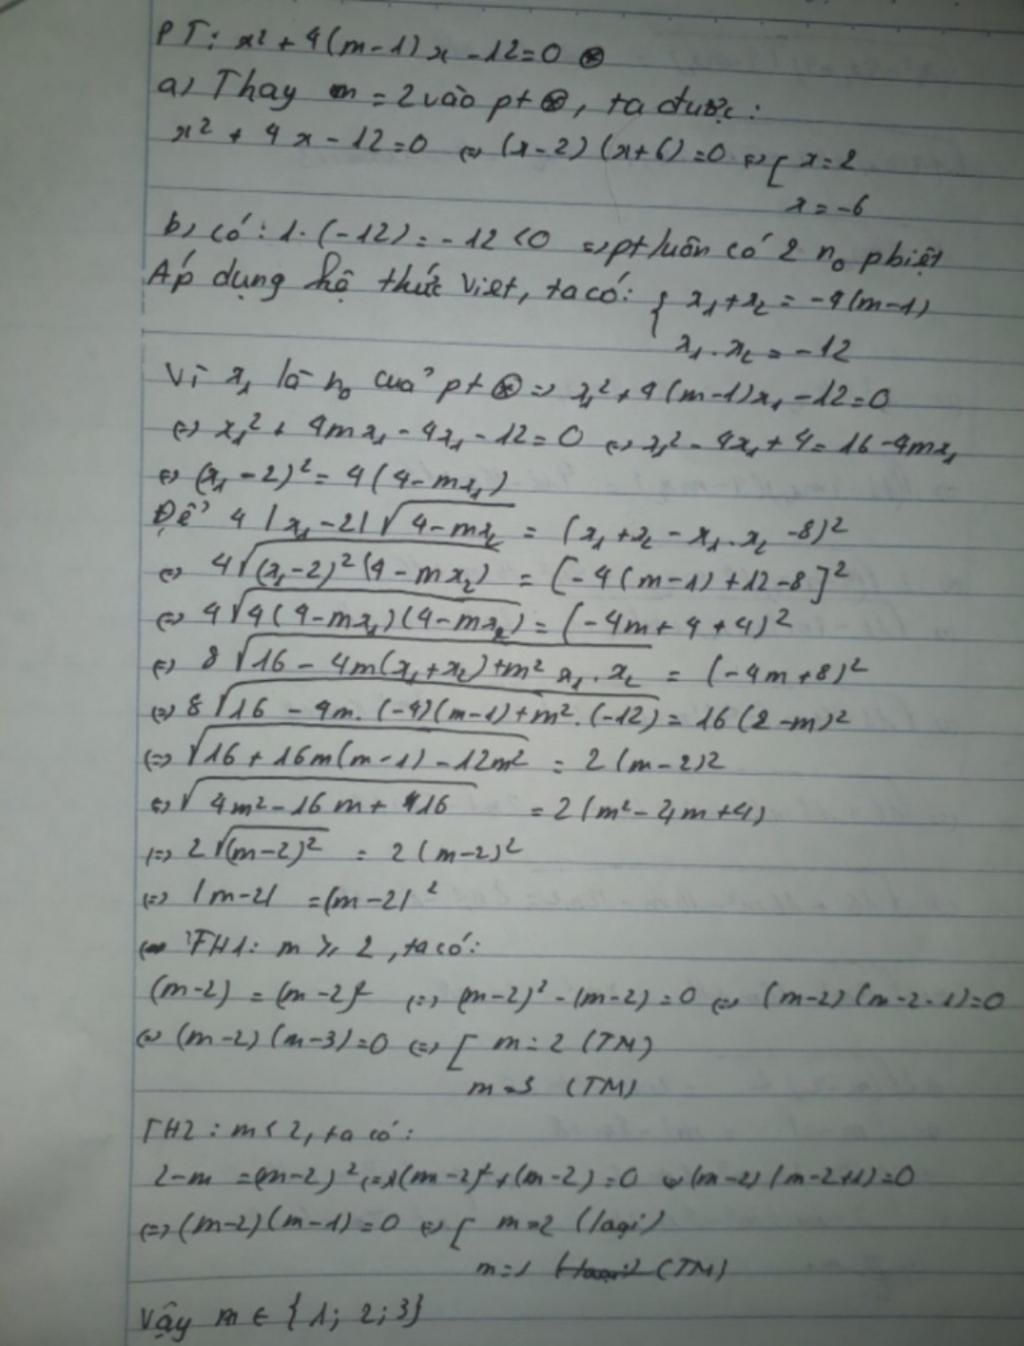 PT: x² + 4(m-1)x - 12=0 ⊛
a) Thay m = 2 vào pt ⊛, ta được:
x² + 4x - 12=0 ⇔ (x-2)(x+6)=0 ⇔ [ x=2
x=-6
b) có: 1.(-12)= -12<0 ⇒ pt luôn có 2 n₀ pbiệt
Áp dụng hệ thức Viet, ta có: { x₁+x₂ = -4(m-1)
x₁.x₂ = -12
Vì x₁ là n₀ của pt ⊛ ⇒ x₁²+4(m-1)x₁-12=0
⇔ x₁² + 4mx₁ - 4x₁ - 12=0 ⇔ x₁² - 4x₁ + 4 = 16-4mx₁
⇔ (x₁-2)² = 4(4-mx₁)
Để 4|x₁-2|√(4-mx₂) = (x₁+x₂-x₁.x₂-8)²
⇔ 4√((x₁-2)²(4-mx₂)) = [-4(m-1)+12-8]²
⇔ 4√(4(4-mx₁)(4-mx₂)) = (-4m+4+4)²
⇔ 8√(16-4m(x₁+x₂)+m² x₁.x₂) = (-4m+8)²
⇔ 8√(16-4m.(-4)(m-1)+m².(-12)) = 16(2-m)²
⇔ √(16+16m(m-1)-12m²) = 2(m-2)²
⇔ √(4m²-16m+16) = 2(m²-4m+4)
⇔ 2√((m-2)²) = 2(m-2)²
⇔ |m-2| = (m-2)²
TH1: m ≥ 2, ta có:
(m-2) = (m-2)² ⇔ (m-2)²-(m-2)=0 ⇔ (m-2)(m-2-1)=0
⇔ (m-2)(m-3)=0 ⇔ [ m=2 (TM)
m=3 (TM)
TH2: m<2, ta có:
2-m = (m-2)² ⇔ (m-2)²+(m-2)=0 ⇔ (m-2)(m-2+1)=0
⇔ (m-2)(m-1)=0 ⇔ [ m=2 (loại)
m=1 (TM)
Vậy m ∈ {1; 2; 3}